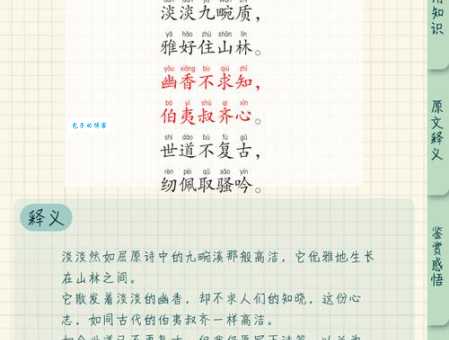 dàn dàn jiǔ wǎn zhì
淡淡九畹质，
yǎ hǎo zhù shān lín
雅好住山林。
yōu xiāng bù qiú zhī
幽香不求知，
bó yí shū qí xīn
伯夷叔齐心。
shì dào bù fù gǔ
世道不复古，
rèn pèi qǔ sāo yín
纫佩取骚吟。
释义
淡淡然如屈原诗中的九畹溪那般高洁，它优雅地生长
在山林之间。
它散发着淡淡的幽香，却不求人们的知晓，这份心
志，如同古代的伯夷叔齐一样高洁。
知识
原文释义
鉴赏感悟